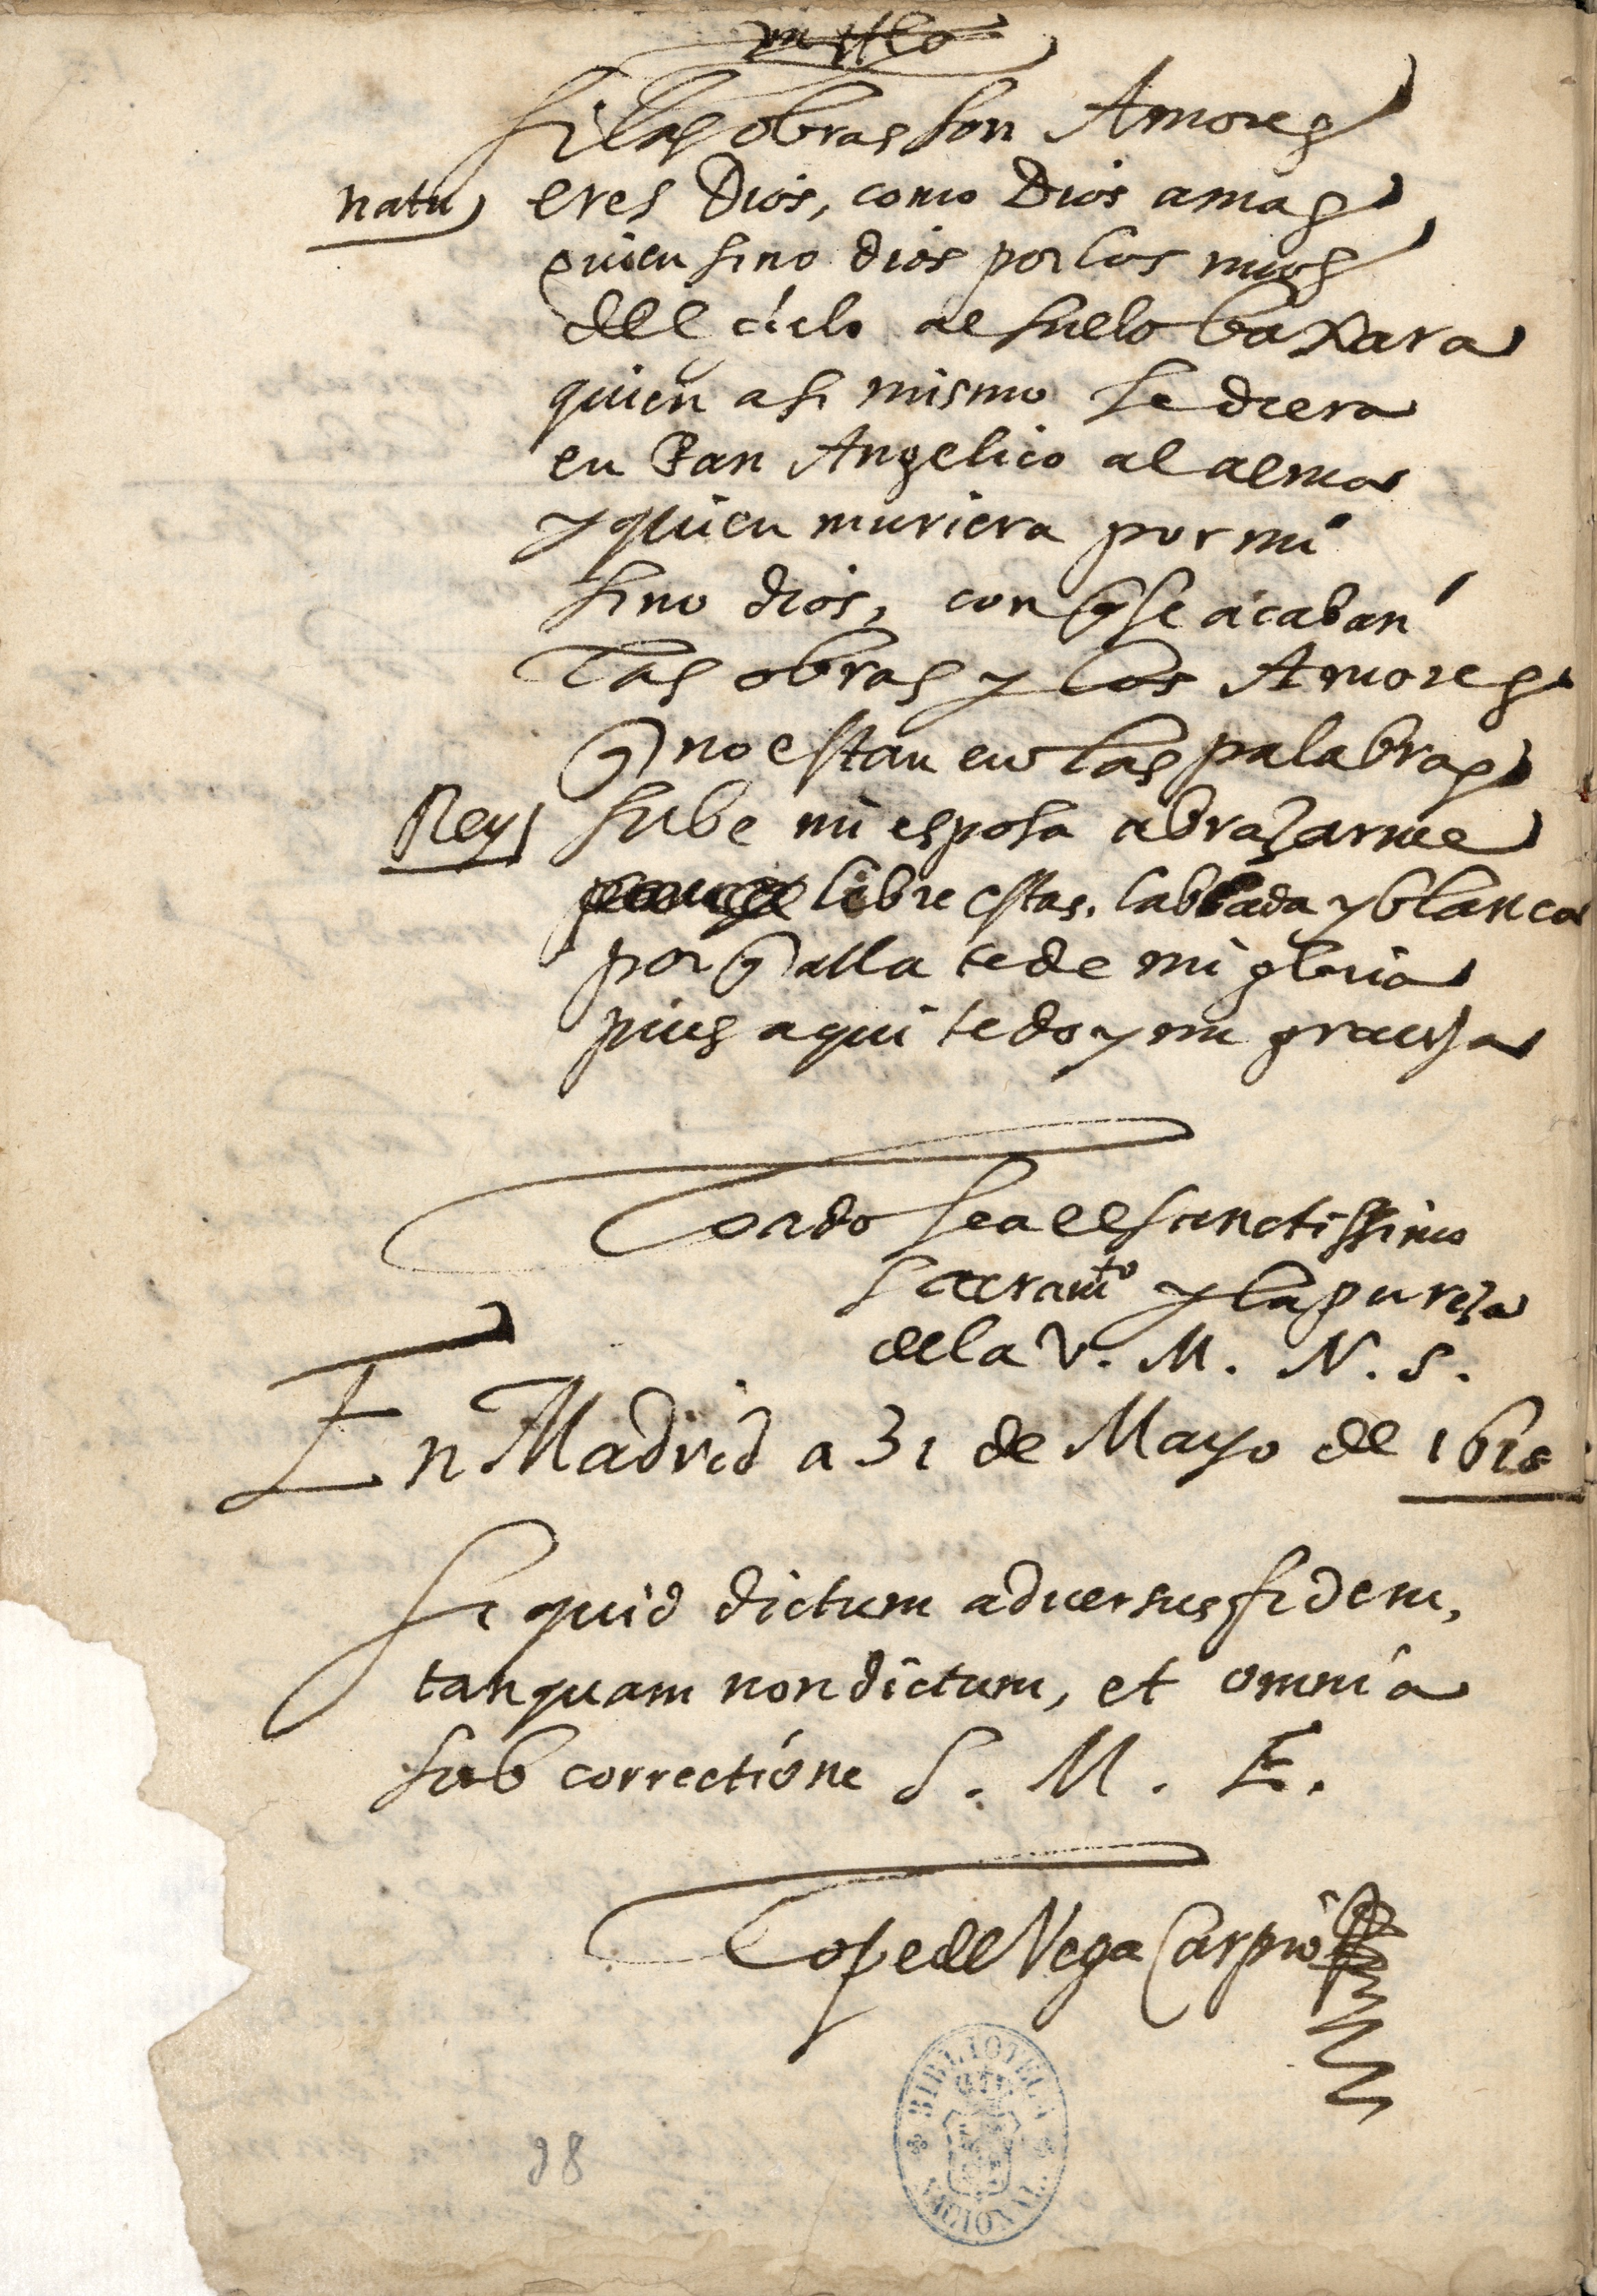 si las obras son Amores
natu eres Dios, como Dios amas
quien sino dios por los mios
del cielo al suelo baxara
quien asi mismo se diera
en Pan Angelico al alma
y quien muriera por mi
sino dios, con q se acaban
las obras y los Amores
q no estan en las palabras
Rey sube mi esposa abrazarme
libre estas, labada y blanca
por q alla te de mi gloria
pues aqui te doy mi grazia
Loado sea el sanctissimo
sacramto y la pureza
de la V. M. N. S.
En Madrid a 31 de Mayo de
si quid dictum adversus fidem,
tanquam non dictum, et omnia
sub correctione S. M. E.
Lope de Vega Carpio
BIBLIOTECA NACIONAL
98